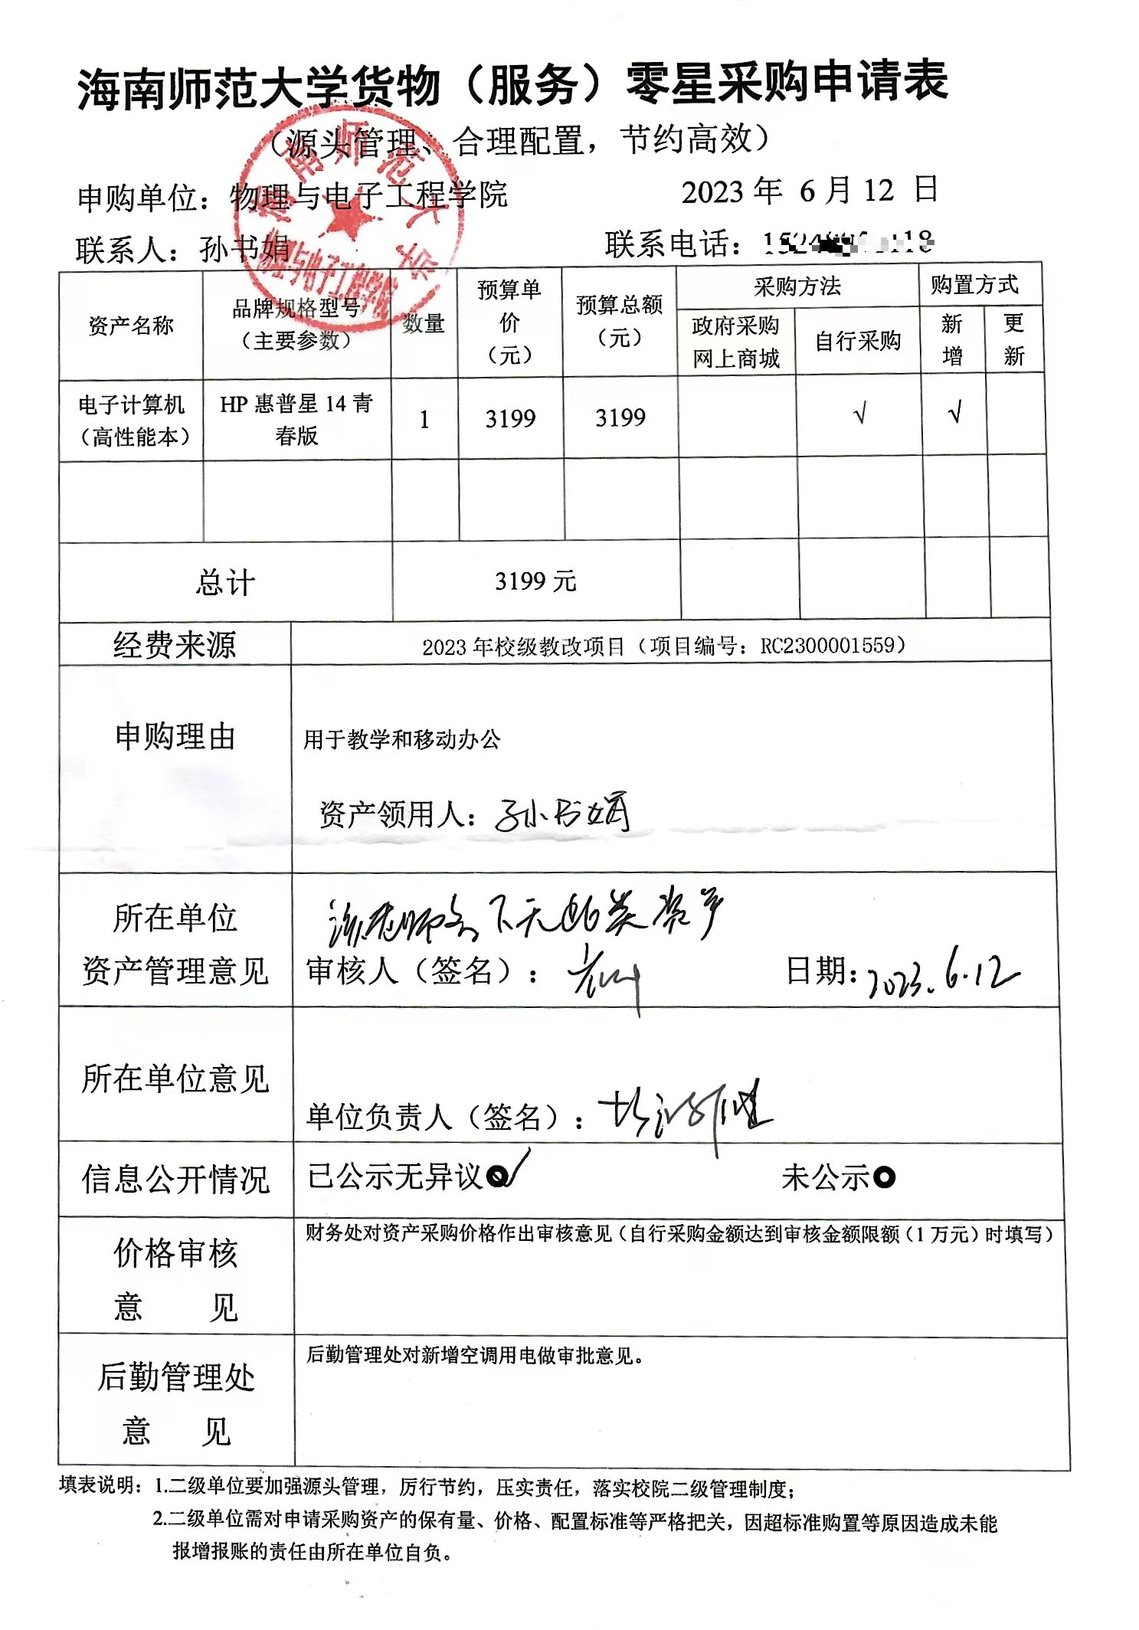 海南师范大学货物（服务）零星采购申请表
（源头管理、合理配置，节约高效）
申购单位：物理与电子工程学院 2023 年 6 月 12 日
联系人：孙书娟 联系电话：
海南师范大学
物理与电子工程学院
资产名称 品牌规格型号（主要参数） 数量 预算单价（元） 预算总额（元） 采购方法 购置方式
政府采购网上商城 自行采购 新增 更新
电子计算机（高性能本） HP 惠普星 14 青春版 1 3199 3199 √ √
总计 3199 元
经费来源 2023 年校级教改项目（项目编号：RC2300001559）
申购理由 用于教学和移动办公
资产领用人：孙书娟
所在单位
资产管理意见 审核人（签名）： 日期：2023.6.12
所在单位意见
单位负责人（签名）：
信息公开情况 已公示无异议 ✓ 未公示
价格审核意 见 财务处对资产采购价格作出审核意见（自行采购金额达到审核金额限额（1 万元）时填写）
后勤管理处意 见 后勤管理处对新增空调用电做审批意见。
填表说明：1.二级单位要加强源头管理，厉行节约，压实责任，落实校院二级管理制度；
2.二级单位需对申请采购资产的保有量、价格、配置标准等严格把关，因超标准购置等原因造成未能
报增报账的责任由所在单位自负。